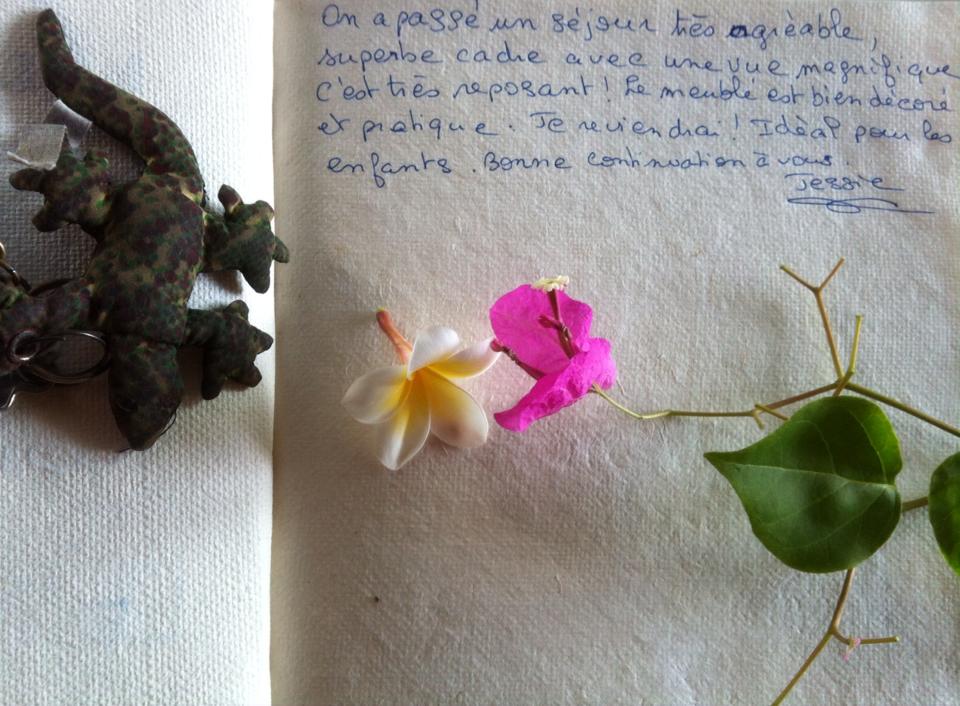 On a passé un séjour très agrèable,
superbe cadre avec une vue magnifique
c'est très reposant! Le meublé est bien décoré
et pratique. Je reviendrai! Idèal pour les
enfants. Bonne continuation à vous.
Jessie